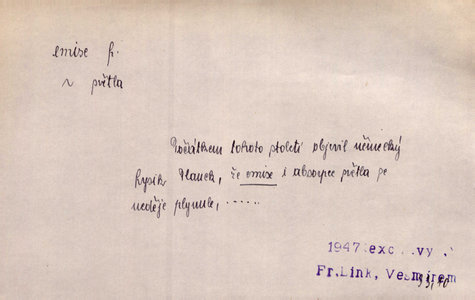 emise f.
~ světla
Počátkem tohoto století objevil německý
fysik Planck, že emise i absorpce světla se
neděje plynule, ......
1947 exc. vý
Fr.Link, Vesmírem